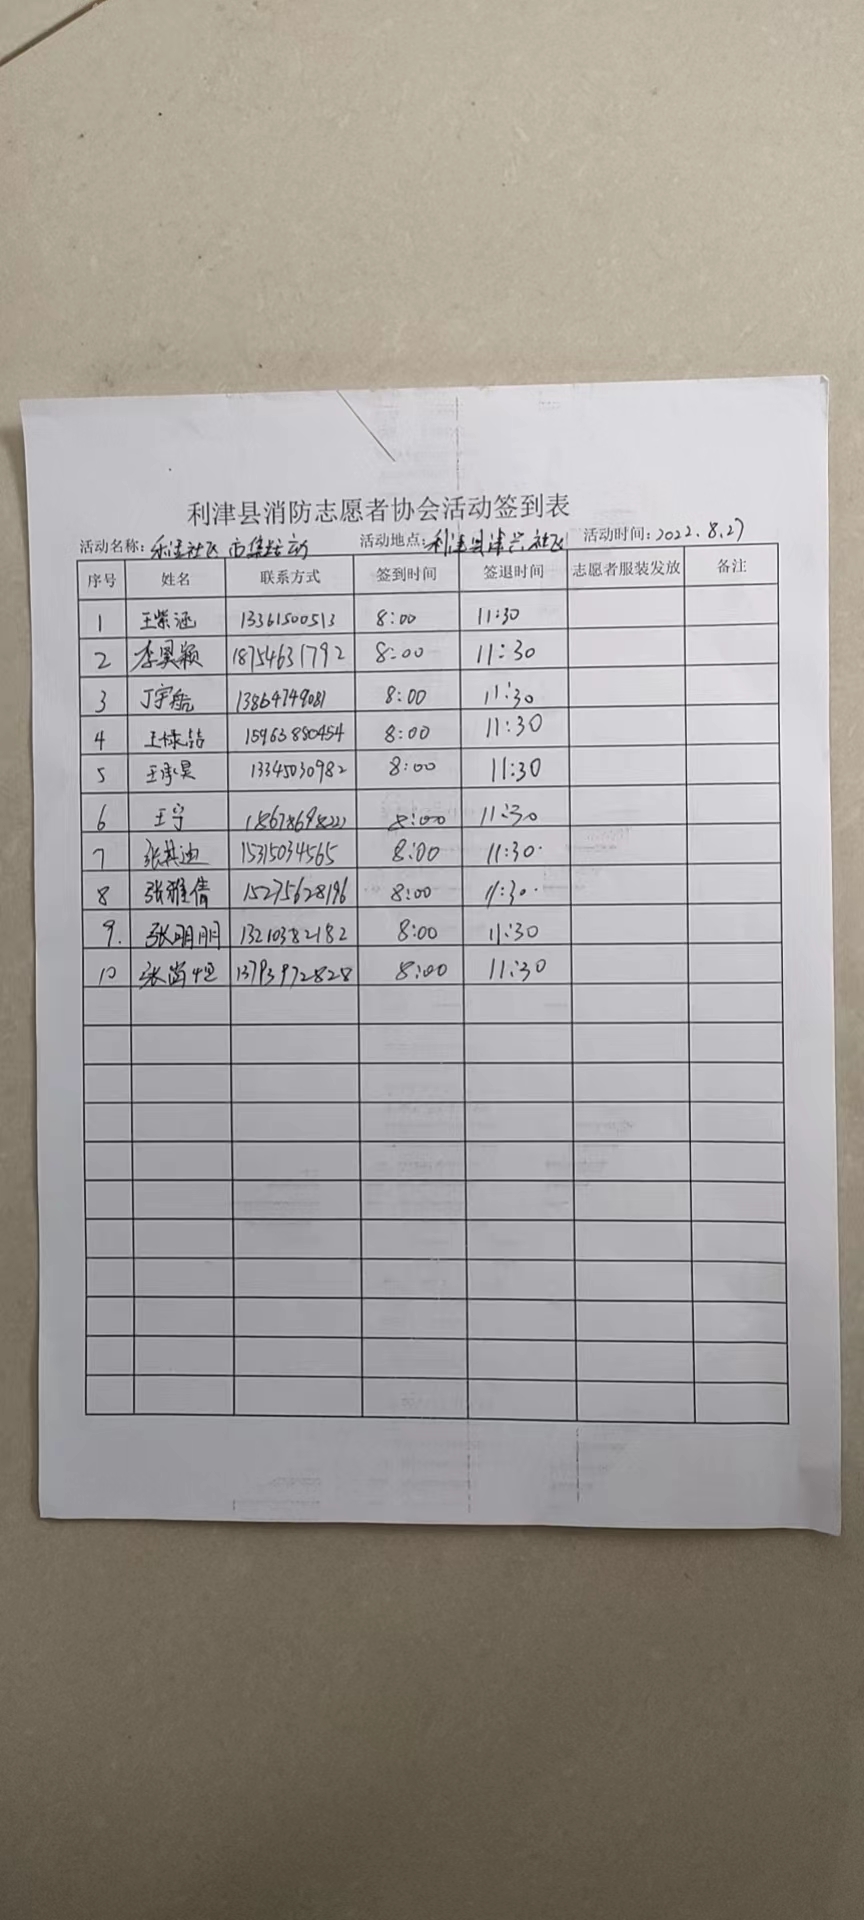 利津县消防志愿者协会活动签到表
活动名称: 社区 市集 活动 活动地点: 利津县津 社区 活动时间: 2022.8.27
序号 姓名 联系方式 签到时间 签退时间 志愿者服装发放 备注
1 王紫涵 13361500513 8:00 11:30
2 李昊颖 18754631792 8:00 11:30
3 丁宇航 13864749081 8:00 11:30
4 王 洁 15963880454 8:00 11:30
5 王承昊 13345030982 8:00 11:30
6 王宁 8:00 11:30
7 张其迪 15315034565 8:00 11:30.
8 张雅倩 15275628196 8:00 11:30.
9. 张明明 13210382182 8:00 11:30
10 张尚恒 13793972828 8:00 11:30